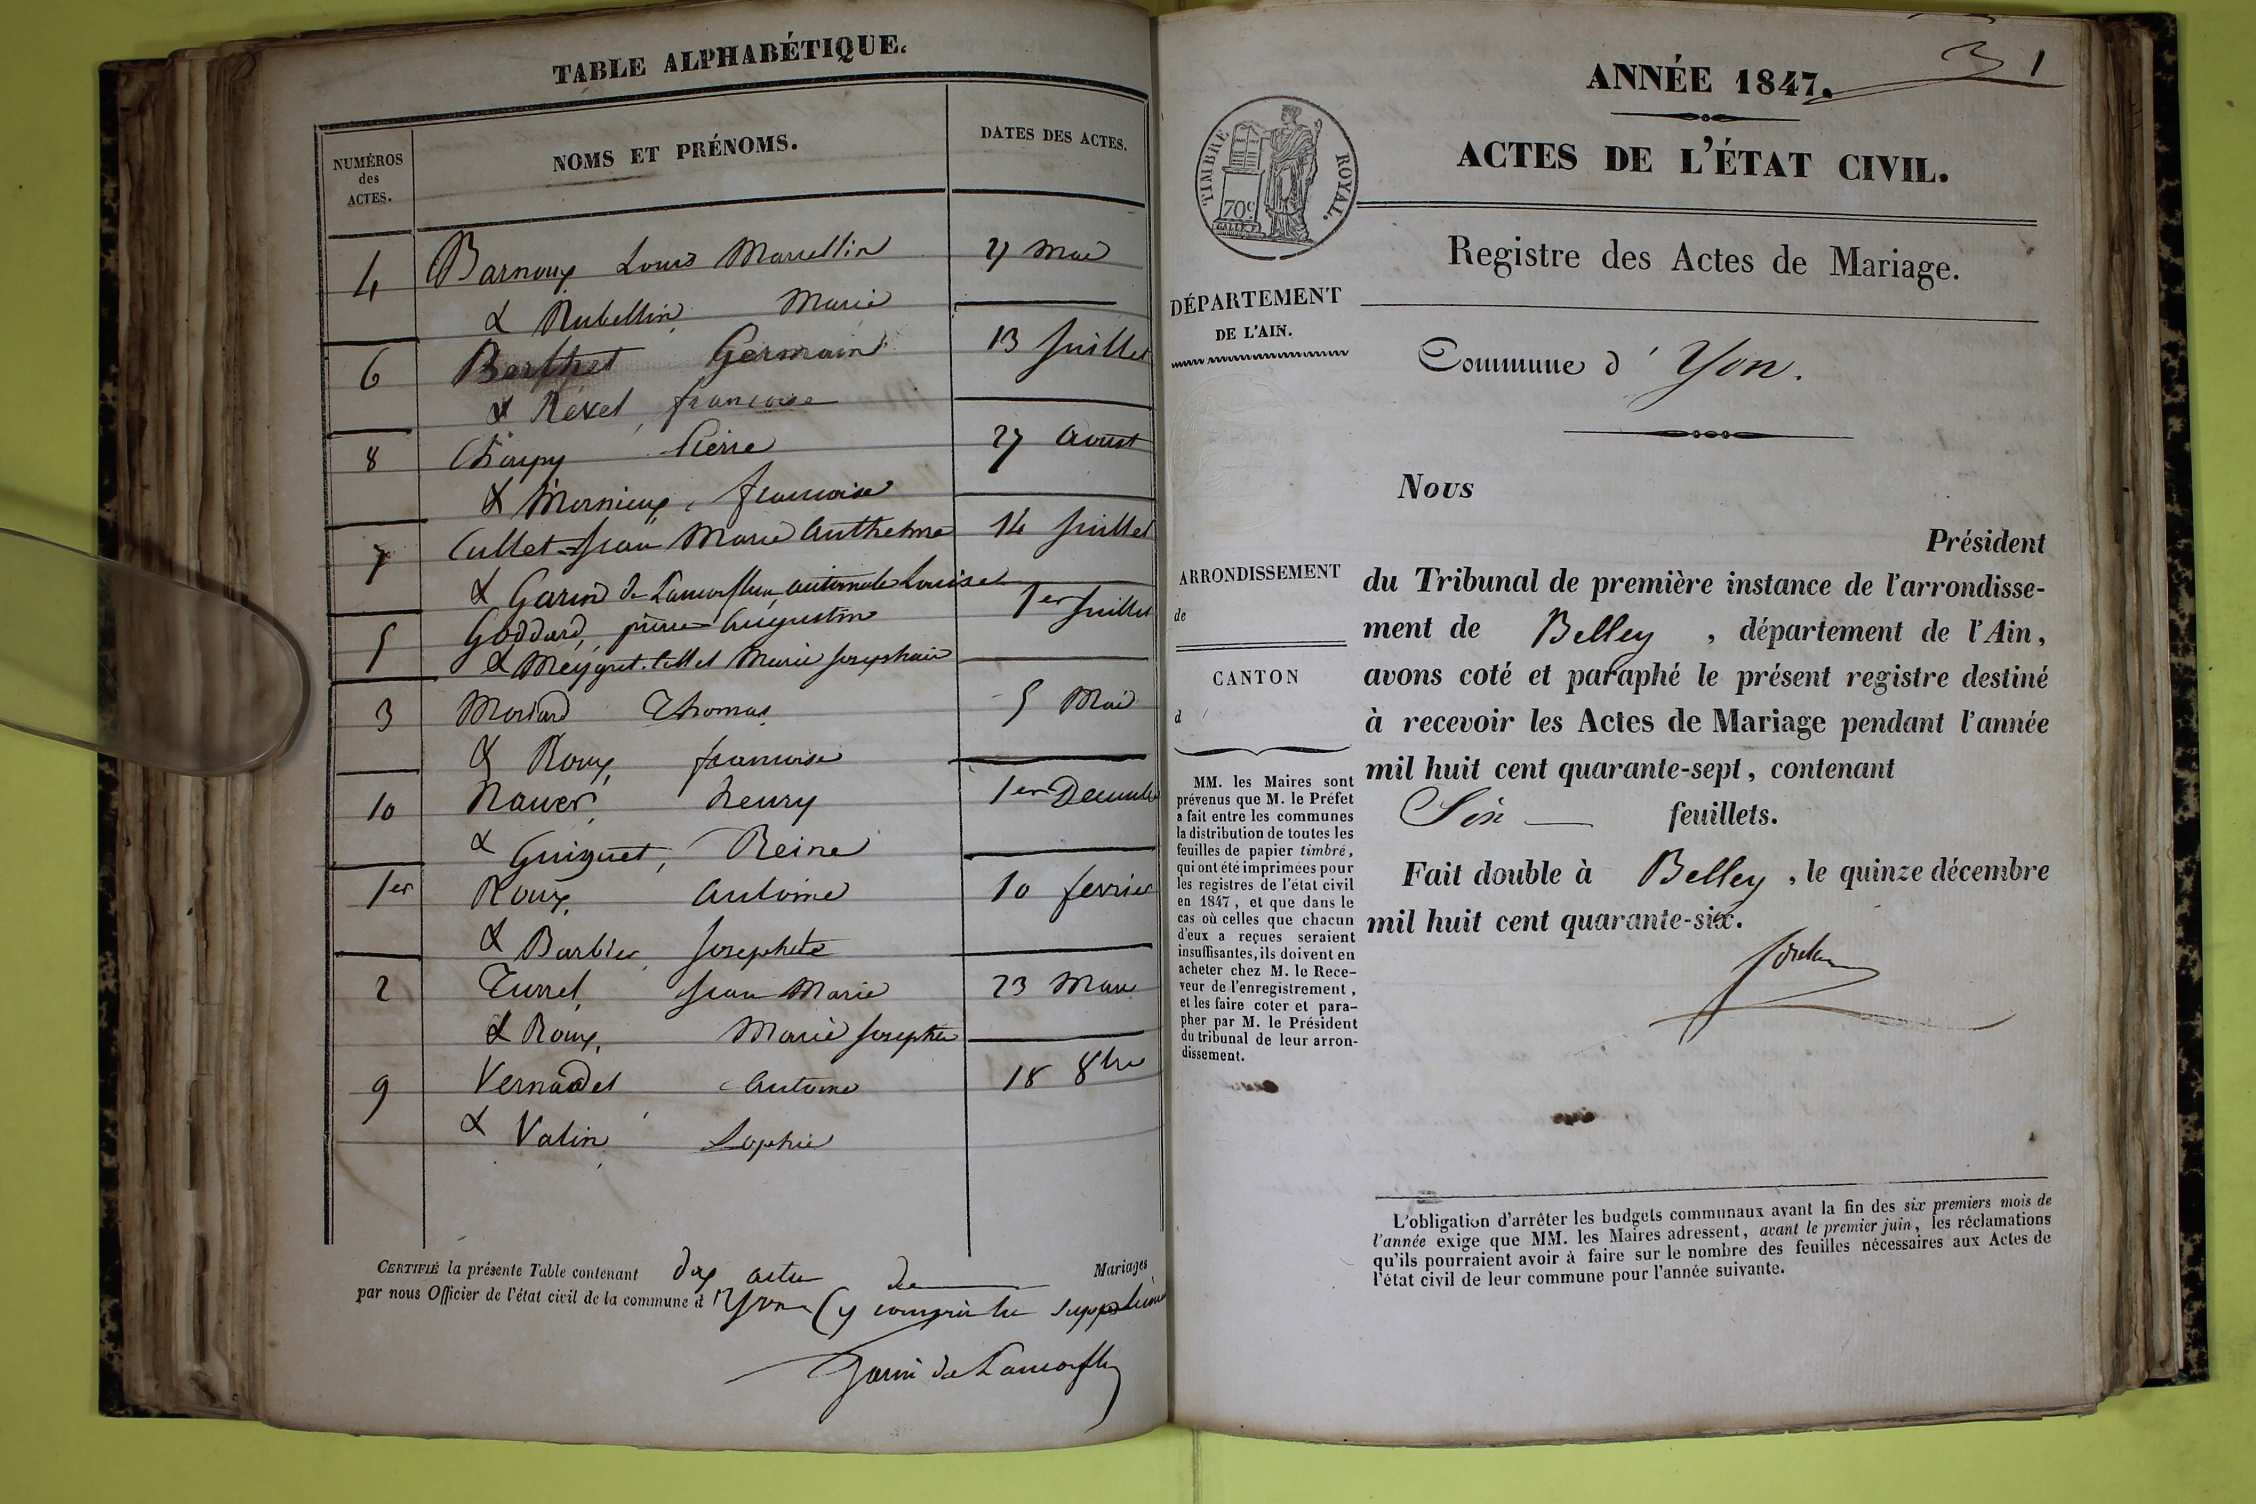 TABLE ALPHABÉTIQUE.
NUMÉROS des ACTES.
NOMS ET PRÉNOMS.
DATES DES ACTES.
4 Barnoux Louis Marcellin 27 Mai
& Rubellin Marie
6 Berthet Germain 13 Juillet
& Revel françoise
8 Charpy Pierre 27 Aoust
& Mornieux, françoise
7 Cullet Jean Marie Anthelme 14 Juillet
& Garin de Lamorflan Louise
5 Goddard, pierre Augustin 1er Juillet
& Marie
3 Thomas 5 Mai
& Roux, françoise
10 henry 1er Decembre
& Guiguet, Reine
1er Roux, Antoine 10 fevrier
& Barbier, Josephte
2 Turrel, Jean Marie 23 Mars
& Roux, Marie Josephte
9 Vernadet Antoine 18 8bre
& Vatin Sophie
CERTIFIÉ la présente Table contenant dix actes de Mariages
par nous Officier de l'état civil de la commune d'Yon (y compris le
Garin de Lamorflan
3 1
ANNÉE 1847.
ACTES DE L'ÉTAT CIVIL.
TIMBRE ROYAL.
70c
Registre des Actes de Mariage.
DÉPARTEMENT
DE L'AIN.
Commune d'Yon.
Nous
Président
ARRONDISSEMENT
de
CANTON
d
du Tribunal de première instance de l'arrondisse-
ment de Belley, département de l'Ain,
avons coté et paraphé le présent registre destiné
à recevoir les Actes de Mariage pendant l'année
mil huit cent quarante-sept, contenant
Six feuillets.
Fait double à Belley, le quinze décembre
mil huit cent quarante-six.
MM. les Maires sont
prévenus que M. le Préfet
a fait entre les communes
la distribution de toutes les
feuilles de papier timbré,
qui ont été imprimées pour
les registres de l'état civil
en 1847, et que dans le
cas où celles que chacun
d'eux a reçues seraient
insuffisantes, ils doivent en
acheter chez M. le Rece-
veur de l'enregistrement,
et les faire coter et para-
pher par M. le Président
du tribunal de leur arron-
dissement.
L'obligation d'arrêter les budgets communaux avant la fin des six premiers mois de
l'année exige que MM. les Maires adressent, avant le premier juin, les réclamations
qu'ils pourraient avoir à faire sur le nombre des feuilles nécessaires aux Actes de
l'état civil de leur commune pour l'année suivante.